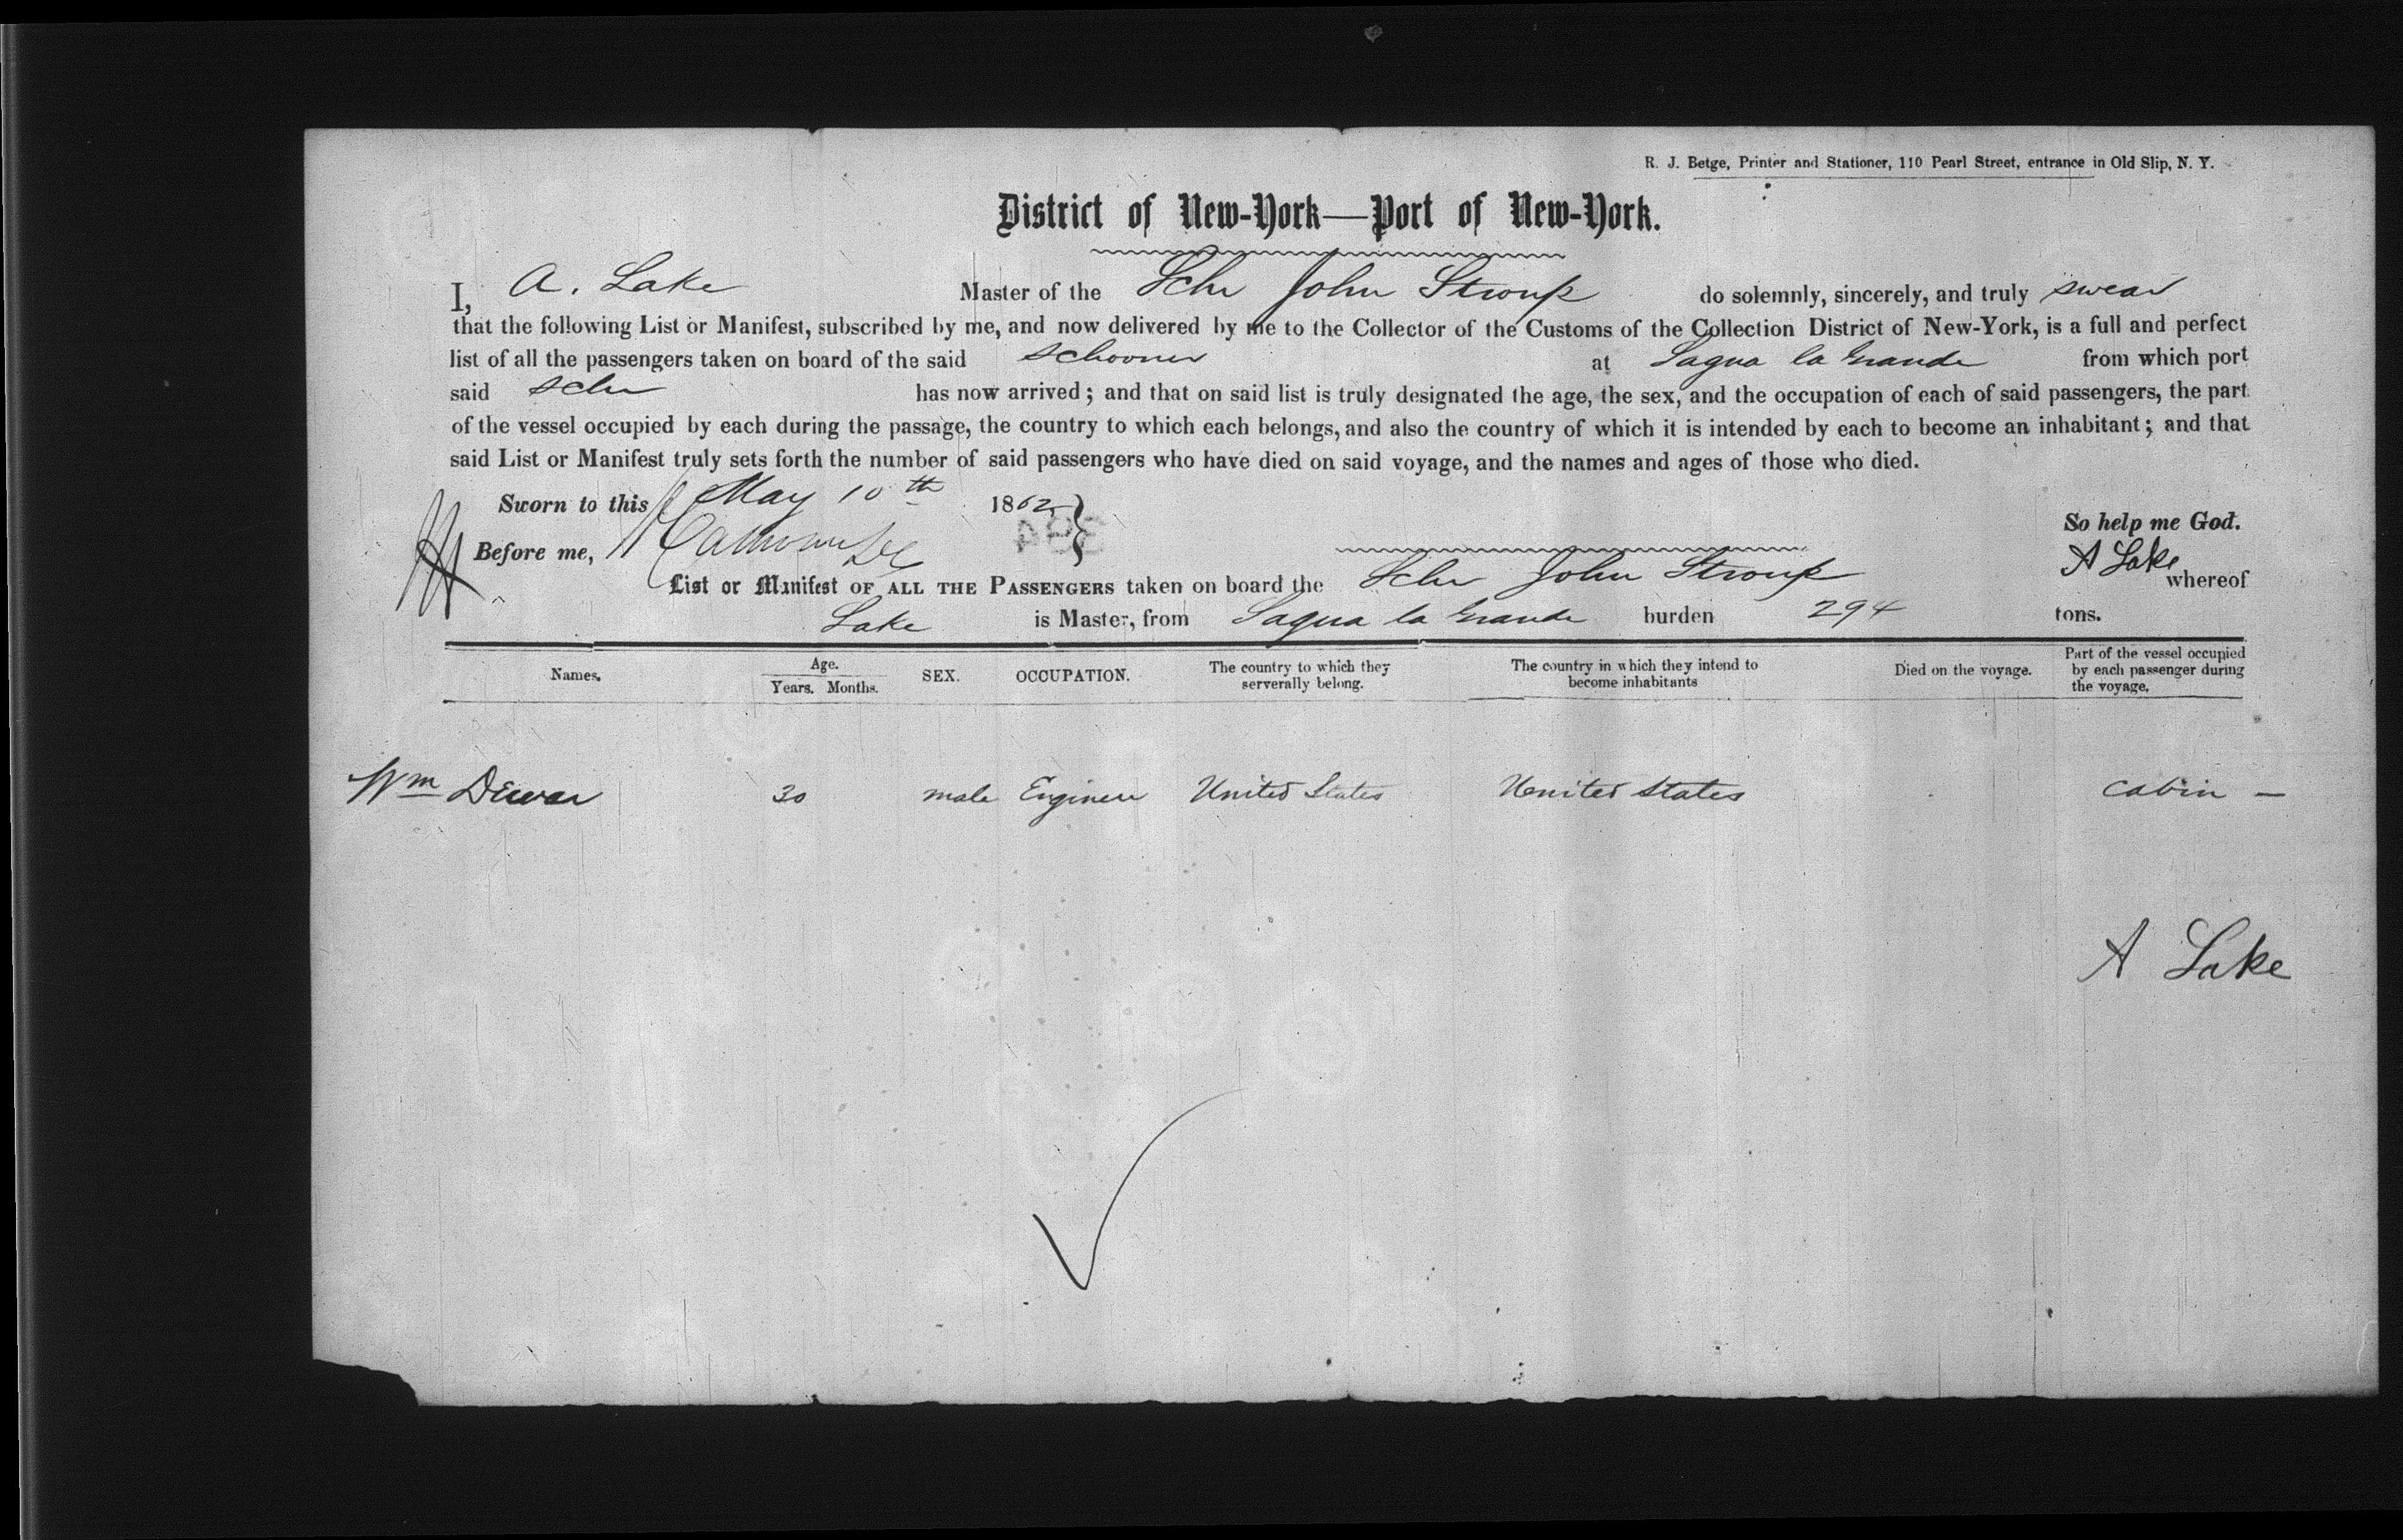 R. J. Betge, Printer and Stationer, 110 Pearl Street, entrance in Old Slip, N. Y.
District of New-York—Port of New-York.
I, A. Lake Master of the Schr John Stroup do solemnly, sincerely, and truly swear
that the following List or Manifest, subscribed by me, and now delivered by me to the Collector of the Customs of the Collection District of New-York, is a full and perfect
list of all the passengers taken on board of the said Schooner at Sagua la Grande from which port
said Schr has now arrived; and that on said list is truly designated the age, the sex, and the occupation of each of said passengers, the part
of the vessel occupied by each during the passage, the country to which each belongs, and also the country of which it is intended by each to become an inhabitant; and that
said List or Manifest truly sets forth the number of said passengers who have died on said voyage, and the names and ages of those who died.
Sworn to this May 10th 1862
So help me God.
Before me,
A Lake
List or Manifest OF ALL THE PASSENGERS taken on board the Schr John Stroup whereof
Lake is Master, from Sagua la Grande burden 294 tons.
Names. Age. Years. Months. SEX. OCCUPATION. The country to which they serverally belong. The country in which they intend to become inhabitants Died on the voyage. Part of the vessel occupied by each passenger during the voyage.
Wm Dewar 30 male Engineer United States United States cabin —
A Lake